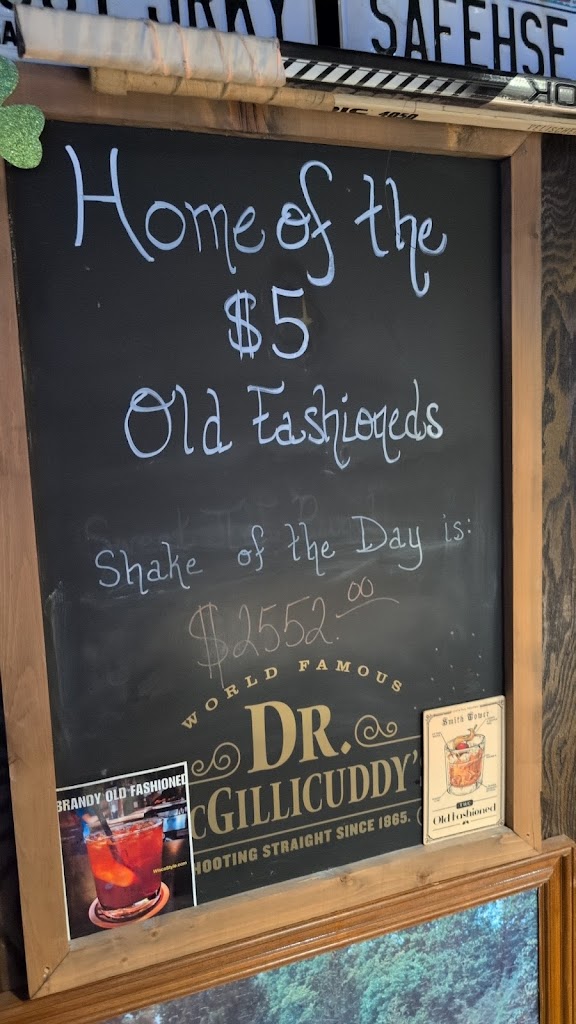 SAFEHSE
Home of the
$5
Old Fashioneds
Shake of the Day is:
$2552.00
WORLD FAMOUS
DR.
cGILLICUDDY'
HOOTING STRAIGHT SINCE 1865.
BRANDY OLD FASHIONED
Smith Tower
THE
Old Fashioned